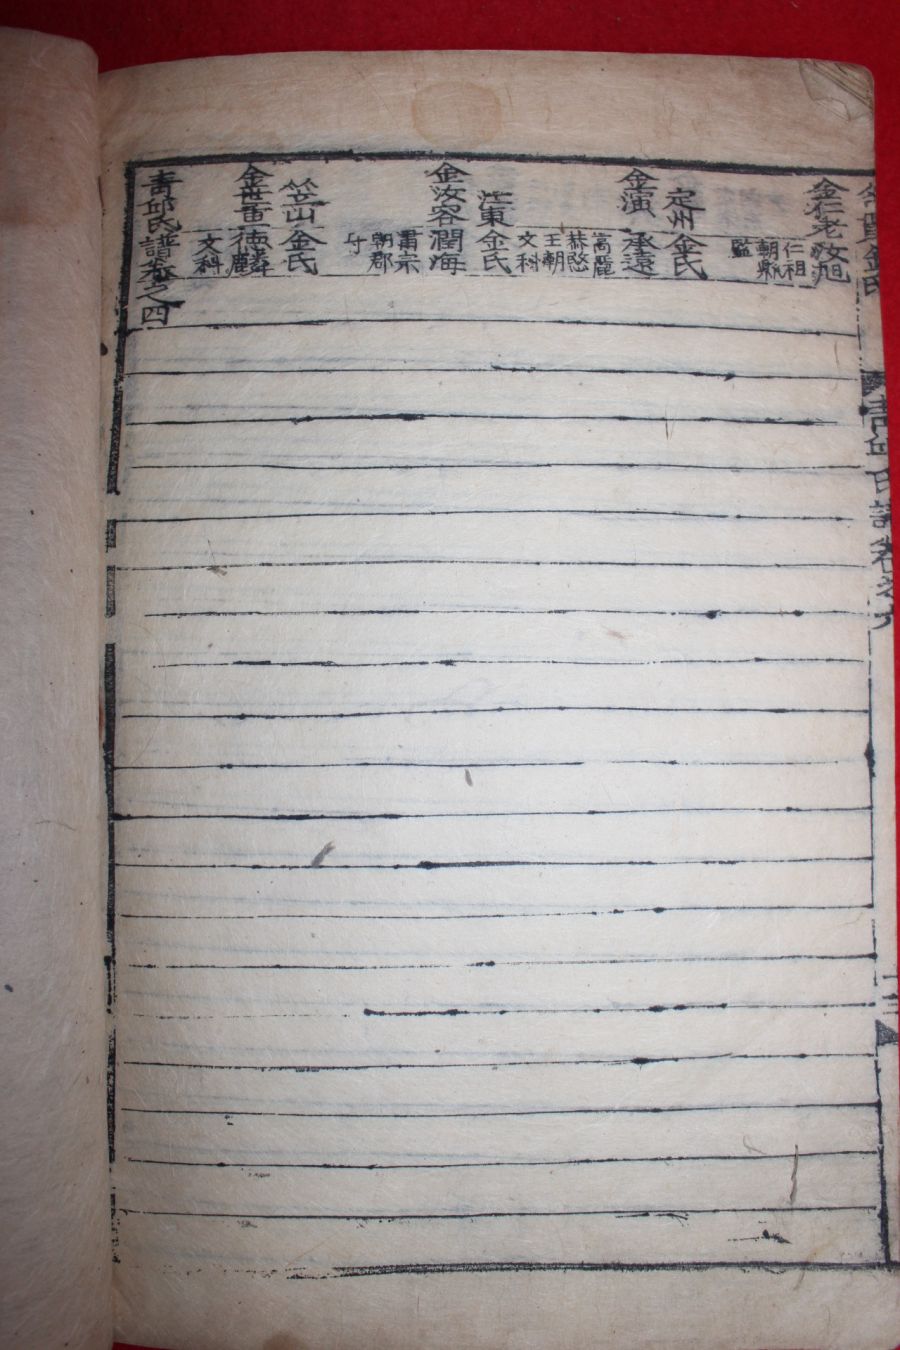 金氏
金仁老 敏旭
仁祖
朝縣
監
定州金氏
金演 承遠
高麗
恭愍
王朝
文科
江東金氏
金汝容 潤海
肅宗
朝郡
守
笠山金氏
金世重 德麟
文科
靑邱氏譜卷之四